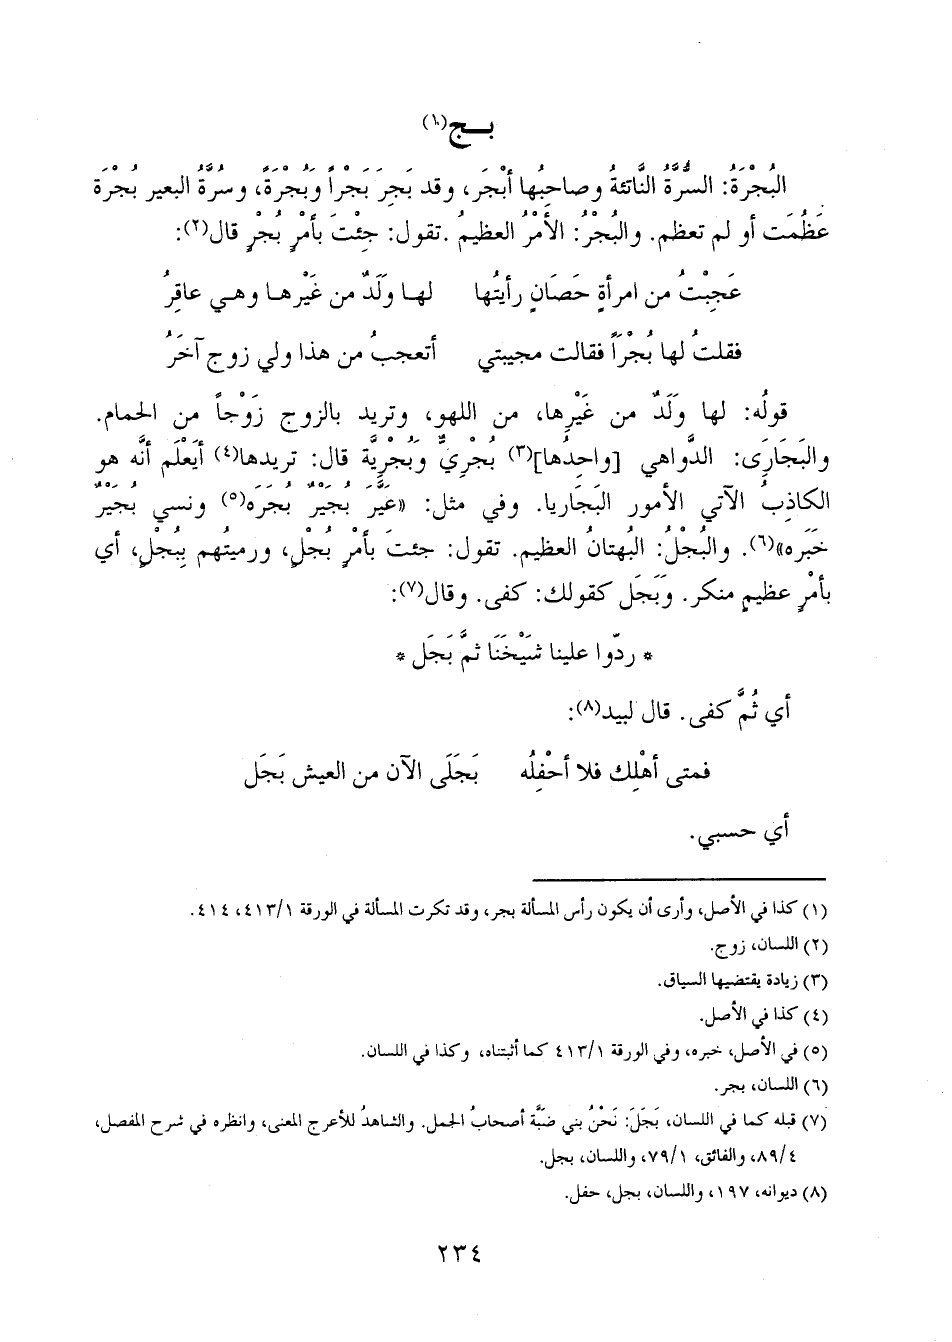 بــج(١)
البُجْرَةُ: السُّرَّةُ النَّاتئةُ وصاحبُها أبْجَر، وقد بَجِرَ بَجْراً وبُجْرةً، وسرةُ البعير بُجْرَة
عَظُمَت أو لم تعظم. والبُجْرُ: الأمْرُ العظيمُ .تقول: جِئْتَ بأمْرٍ بُجْرٍ قال(٢):
عَجِبْتُ من امرأةٍ حَصَانٍ رأيتُها لهـا وَلَدٌ من غَيْرهـا وهـي عاقِرُ
فقلتُ لها بُجْرَاً فقالت مجيبتي أتعجبُ من هذا ولي زوج آخَرُ
قولُه: لها وَلَدٌ من غَيْرِها، من اللهو، وتريد بالزوج زَوْجاً من الحمام.
والبَجَارَى: الدَّواهي [واحِدُها](٣) بُجْرِيٌّ وبُجْرِيَّة قال: تريدها(٤) أيَعْلَم أنَّه هو
الكاذِبُ الآتي الأمور البَجَاريا. وفي مثل: «عَيَّرَ بُجَيْرٌ بُجَرَه(٥) ونسي بُجَيْرٌ
خَبَره»(٦). والبُجْلُ: البُهتانُ العظيم. تقول: جئتَ بأمْرٍ بُجْلٍ، ورميتُهم بِبُجْلٍ، أي
بأمْرٍ عظيمٍ منكر. وَبَجَل كقولك: كفى. وقال(٧):
* ردّوا علينا شَيْخَنَا ثمَّ بَجَل *
أي ثُمَّ كفى. قال لبيد(٨):
فمتى أهْلِك فلا أحْفِلُه بَجَلَى الآن من العيش بَجَل
أي حسبي.
(١) كذا في الأصل، وأرى أن يكون رأس المسألة بجر، وقد تكرت المسألة في الورقة ٤١٣/١، ٤١٤.
(٢) اللسان، زوج.
(٣) زيادة يقتضيها السياق.
(٤) كذا في الأصل.
(٥) في الأصل، خبره، وفي الورقة ٤١٣/١ كما أثبتناه، وكذا في اللسان.
(٦) اللسان، بجر.
(٧) قبله كما في اللسان، بَجَلَ: نَحْنُ بني ضَبَّة أصحابُ الجمل. والشاهدُ للأعرج المعنى، وانظره في شرح المفصل،
٨٩/٤، والفائق، ٧٩/١، واللسان، بجل.
(٨) ديوانه، ١٩٧، واللسان، بجل، حفل.
٢٣٤